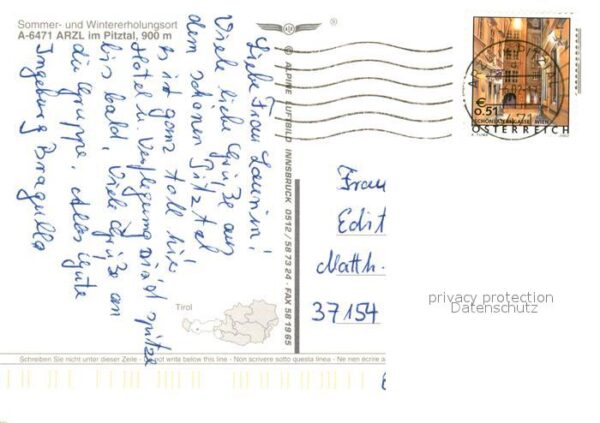 Sommer- und Wintererholungsort
A-6471 ARZL im Pitztal, 900 m
Liebe Frau
Viele liebe Grüße aus
dem schönen Pitztal
Es ist ganz toll hier
Hotel u. Verflegung sind spitze
bis bald, Viele Grüße an
die Gruppe. Alles Gute
Ingeburg
© ALPINE LUFTBILD INNSBRUCK 0512 / 58 73 24 · FAX 58 19 65
Tirol
€ 0.51
ÖSTERREICH
Frau
Edit
Matth.
37154
privacy protection
Datenschutz
Schreiben Sie nicht unter dieser Zeile - Do not write below this line - Non scrivere sotto questa linea - Ne rien écrire a